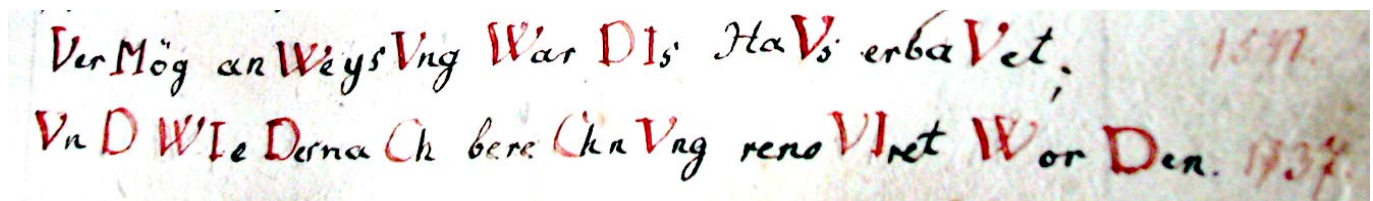 VerMög anWeysVng War DIs HaVs erbaVet; 1541.
VnD WIeDernaCh bereChnVng renoVIret WorDen. 1737.